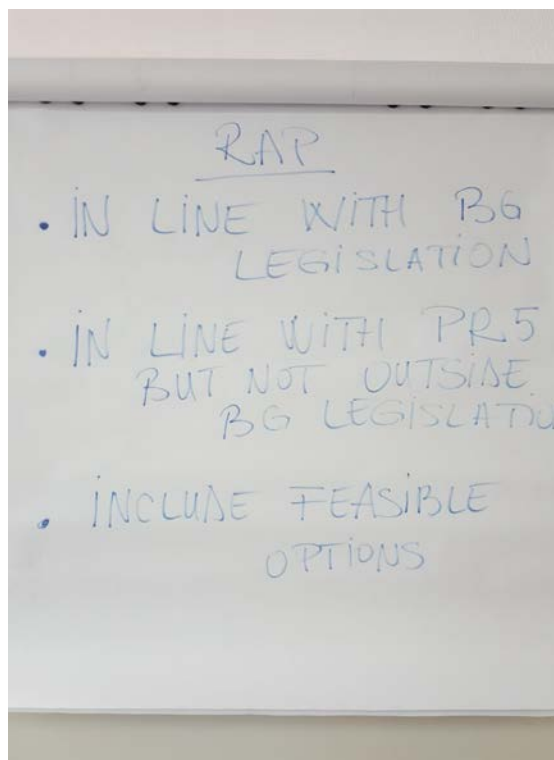 RAP
• IN LINE WITH BG
LEGISLATION
• IN LINE WITH PR5
BUT NOT OUTSIDE
BG LEGISLATIO
• INCLUDE FEASIBLE
OPTIONS